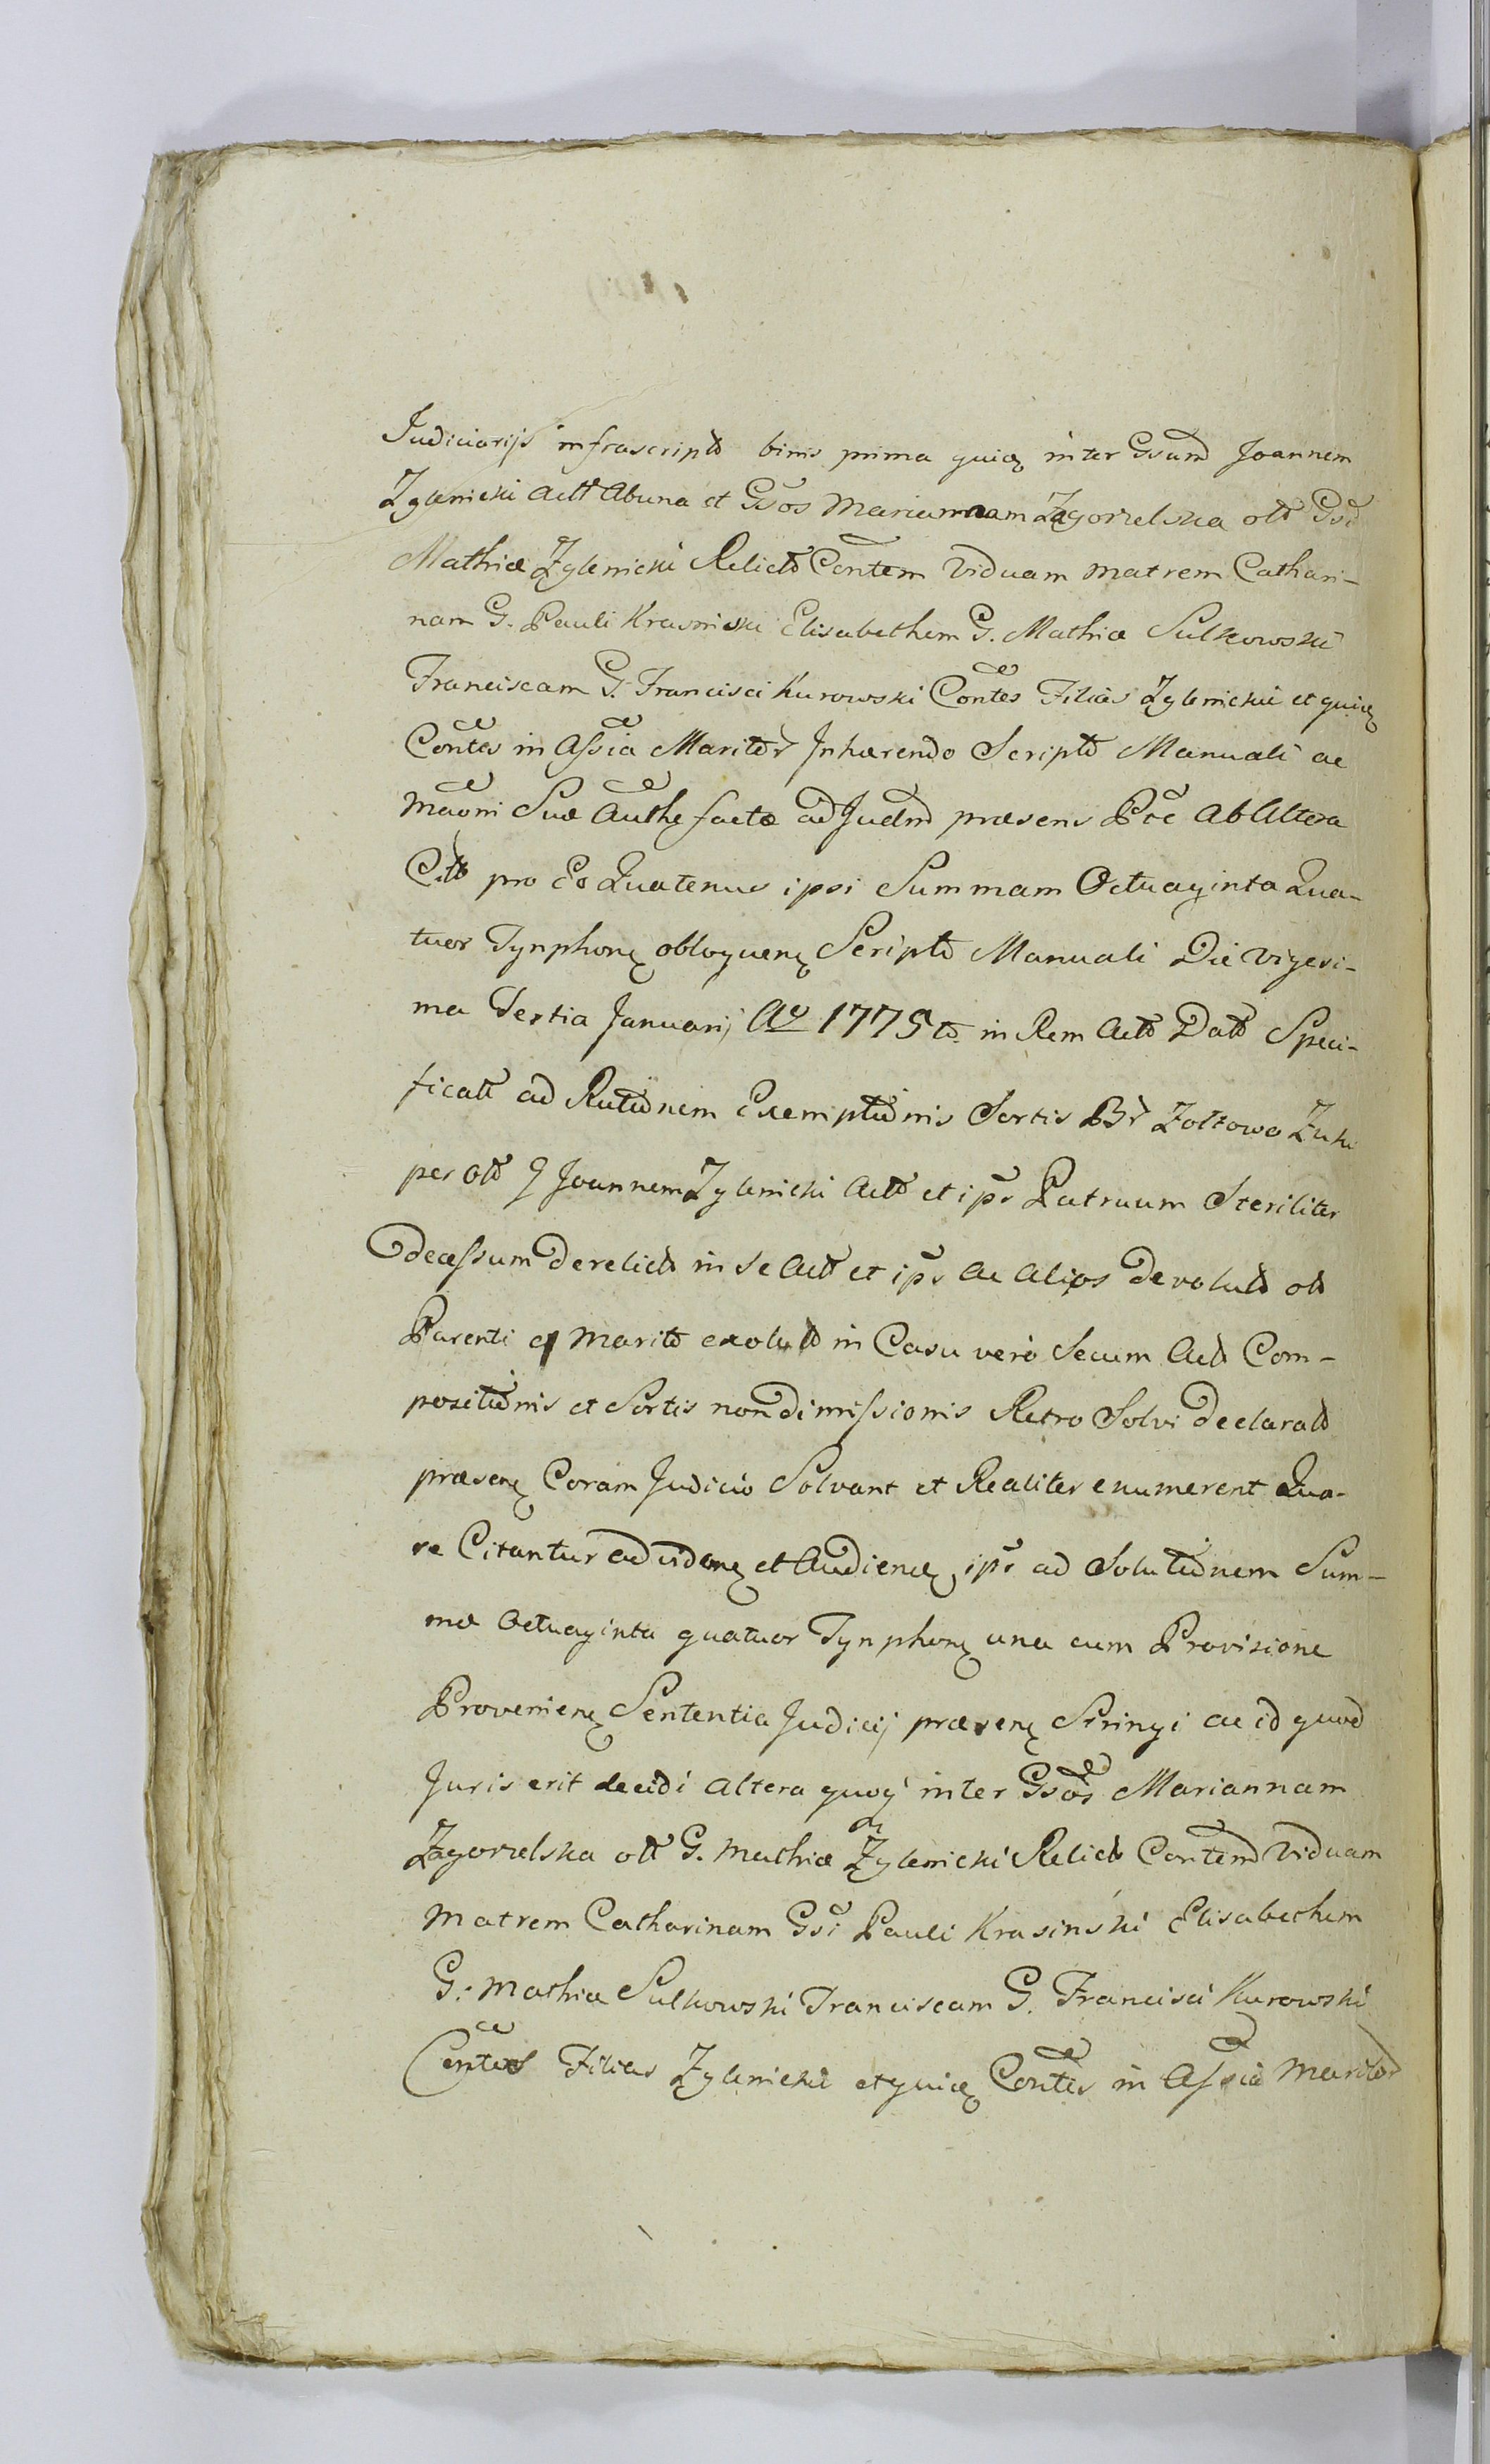 Judiciarijs infrascript̃o binis prima quidẽ inter Gsum̃ Joannem
Zglenicki Actt̃ Abuna et Gs̃os Mariannam Zagorzelska olt̃ Gsĩ
Mathiæ Zglenicki Relict̃o Cõntem viduam matrem Cathari-
nam G. Pauli Krasinski Elisabetham G. Mathiæ Sulkowski
Franciscam G. Francisci Kurowski Cõntes Filias Zglenickie et quidẽ
Cõntes in Ass̃ia Maritor̃ Inhærendo Script̃o Manuali ac
Mãoni Suæ Aũthe factæ ad Judm̃ præsens Pr̃e Ab Altera
Citt̃o pro Eo Quatenus ipsi Summam Octuaginta Qua-
tuor Tynphonẽ obloquenẽ Script̃o Manuali Die Vigesi-
ma Tertia Januarij Ao 1775to in Rem Actt̃ Datt̃o Speci-
ficatt̃ ad Rat̃ionem Exempt̃ionis Sortis Br̃ Zołtowo Zuki
per olt̃o G Joannem Zglenicki Actt̃ et ip̃s Patruum Steriliter
decessum derelict̃o in se Actt̃ et ip̃s Ac Alios devolut̃o olt̃o
Parenti q Marit̃o exolut̃o in Casu verò Secum Actt̃o Com-
posit̃ionis et Sortis non dimissionis Retro Solvi declarat̃o
præsenẽ Coram Judicio Solvant et Realiter enumerent Qua-
re Citantur ad vidẽnẽ et Audiendẽ ip̃s ad Solut̃ionem Sum-
mæ Octuaginta quatuor Tynphonẽ una cum Provisione
Provenienẽ Sententia Judicij præsenẽ Stringi ac id quod
Juris erit decidi Altera quoq inter Gs̃os Mariannam
Zagorzelska olt̃ G. Mathiæ Zglenicki Relict̃o Contem̃ viduam
Matrem Catharinam Gsĩ Pauli Krasinski Elisabetham
G. Mathiæ Sulkowski Franciscam G. Francisci Kurowski
Cõntes Filias Zglenickie et quidẽ Cõntes in Ass̃ia Maritor̃